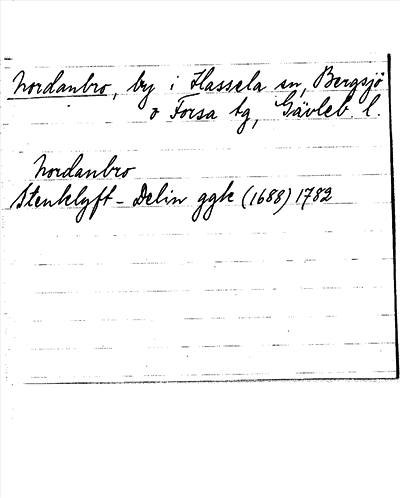 Nordanbro, by i Hassela sn, Bergsjö
o Forsa tg, Gävleb. l.
Nordanbro
Stenklyft - Delin ggk (1688) 1782